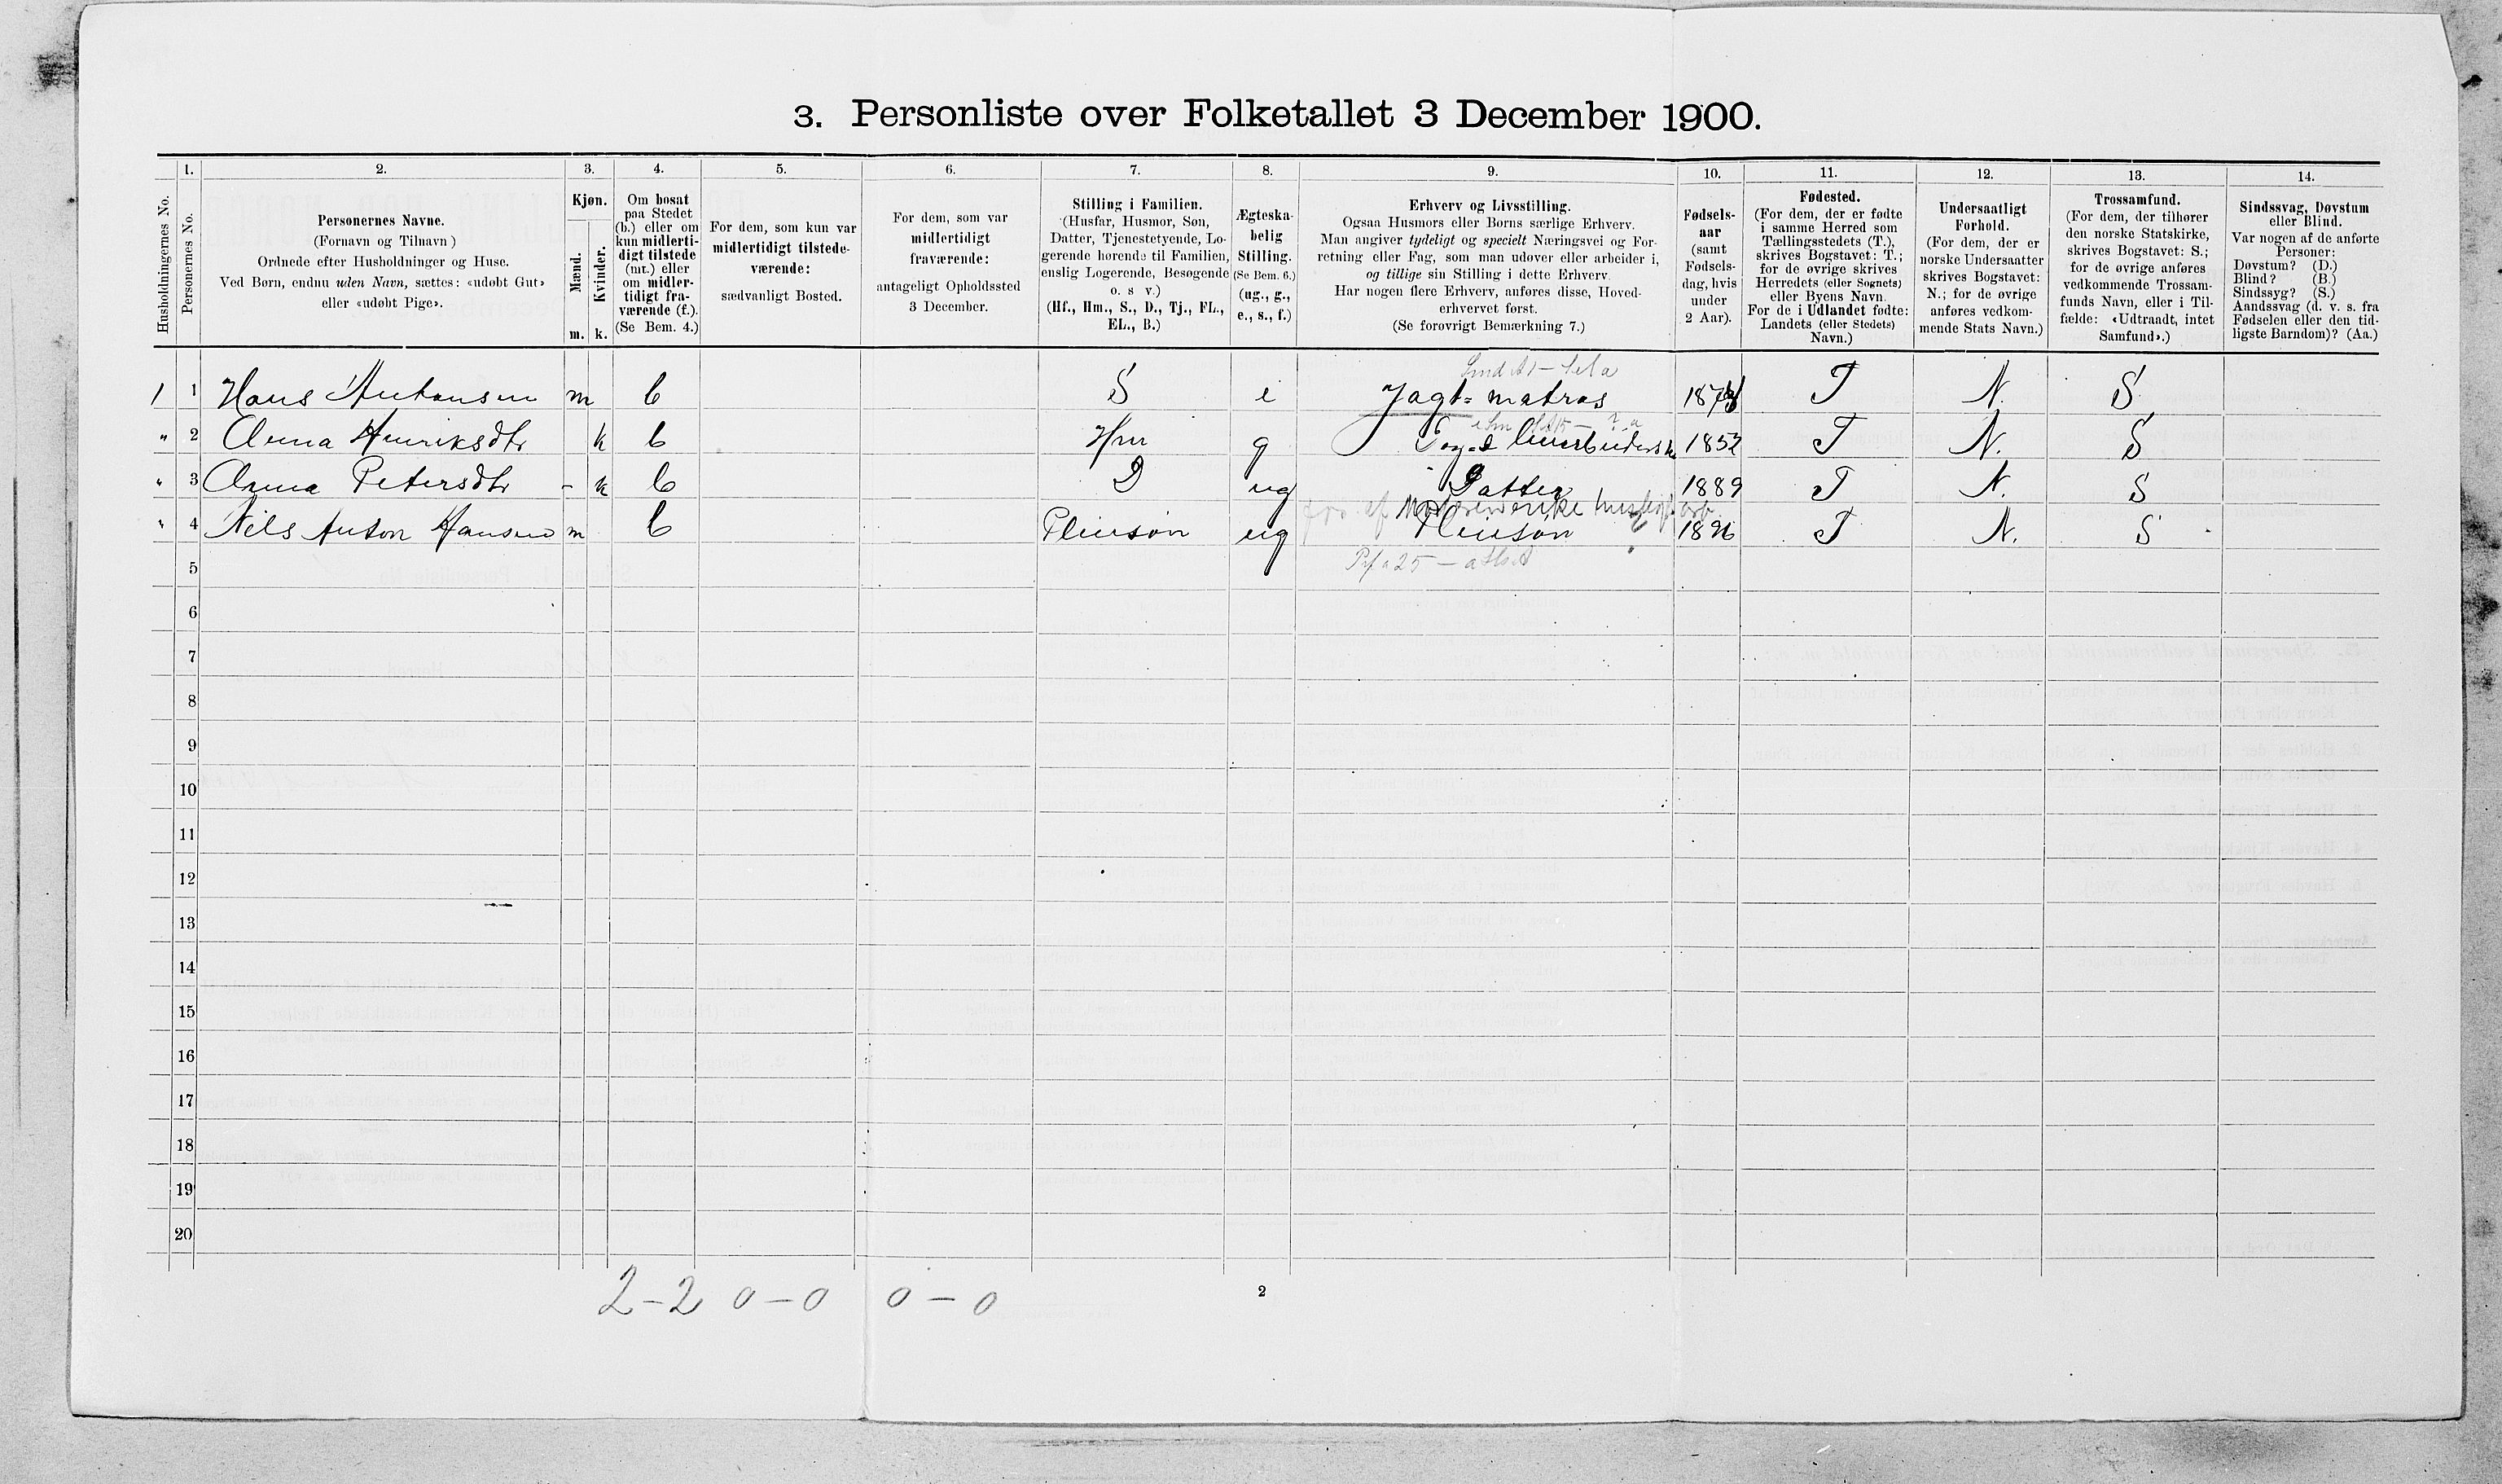 3. Personliste over Folketallet 3 December 1900.
Husholdningernes No.
1.
Personernes No.
2.
Personernes Navne.
(Fornavn og Tilnavn)
Ordnede efter Husholdninger og Huse.
Ved Børn, endnu uden Navn, sættes: «udøbt Gut»
eller «udøbt Pige».
3.
Kjøn.
Mænd.
Kvinder.
m. k.
4.
Om bosat
paa Stedet
(b.) eller om
kun midlerti-
digt tilstede
(mt.) eller
om midler-
tidigt fra-
værende (f.).
(Se Bem. 4.)
5.
For dem, som kun var
midlertidigt tilstede-
værende:
sædvanligt Bosted.
6.
For dem, som var
midlertidigt
fraværende:
antageligt Opholdssted
3 December.
7.
Stilling i Familien.
(Husfar, Husmor, Søn,
Datter, Tjenestetyende, Lo-
gerende hørende til Familien,
enslig Logerende, Besøgende
o. s v.)
(Hf., Hm., S., D., Tj., FL.,
EL., B.)
8.
Ægteska-
belig
Stilling.
(Se Bem. 6.)
(ug., g.,
e., s., f.)
9.
Erhverv og Livsstilling.
Ogsaa Husmors eller Børns særlige Erhverv.
Man angiver tydeligt og specielt Næringsvei og For-
retning eller Fag, som man udøver eller arbeider i,
og tillige sin Stilling i dette Erhverv.
Har nogen flere Erhverv, anføres disse, Hoved-
erhvervet først.
(Se forøvrigt Bemærkning 7.)
10.
Fødsels-
aar
(samt
Fødsels-
dag, hvis
under
2 Aar).
11.
Fødested.
(For dem, der er fødte
i samme Herred som
Tællingsstedets (T.),
skrives Bogstavet: T.;
for de øvrige skrives
Herredets (eller Sognets)
eller Byens Navn.
For de i Udlandet fødte:
Landets (eller Stedets)
Navn.)
12.
Undersaatligt
Forhold.
(For dem, der er
norske Undersaatter
skrives Bogstavet:
N.; for de øvrige
anføres vedkom-
mende Stats Navn.)
13.
Trossamfund.
(For dem, der tilhører
den norske Statskirke,
skrives Bogstavet: S.;
for de øvrige anføres
vedkommende Trossam-
funds Navn, eller i Til-
fælde: «Udtraadt, intet
Samfund».)
14.
Sindssvag, Døvstum
eller Blind.
Var nogen af de anførte
Personer:
Døvstum? (D.)
Blind? (B.)
Sindssyg? (S.)
Aandssvag (d. v. s. fra
Fødselen eller den tid-
ligste Barndom)? (Aa.)
1 1 Hans Antonsen m b S Jagt= matros T N. S
" 2 Anna Henriksdtr k b Hm g T N. S
" 3 Anna Petersdtr - k b D ug Datter 1889 T N. S
" 4 Nils Anton Hansen m b Pleiesøn ug Pleiesøn 1896 T N. S
5
6
7
8
9
10
11
12
13
14
15
16
17
18
19
20
2-2 0-0 0-0
2